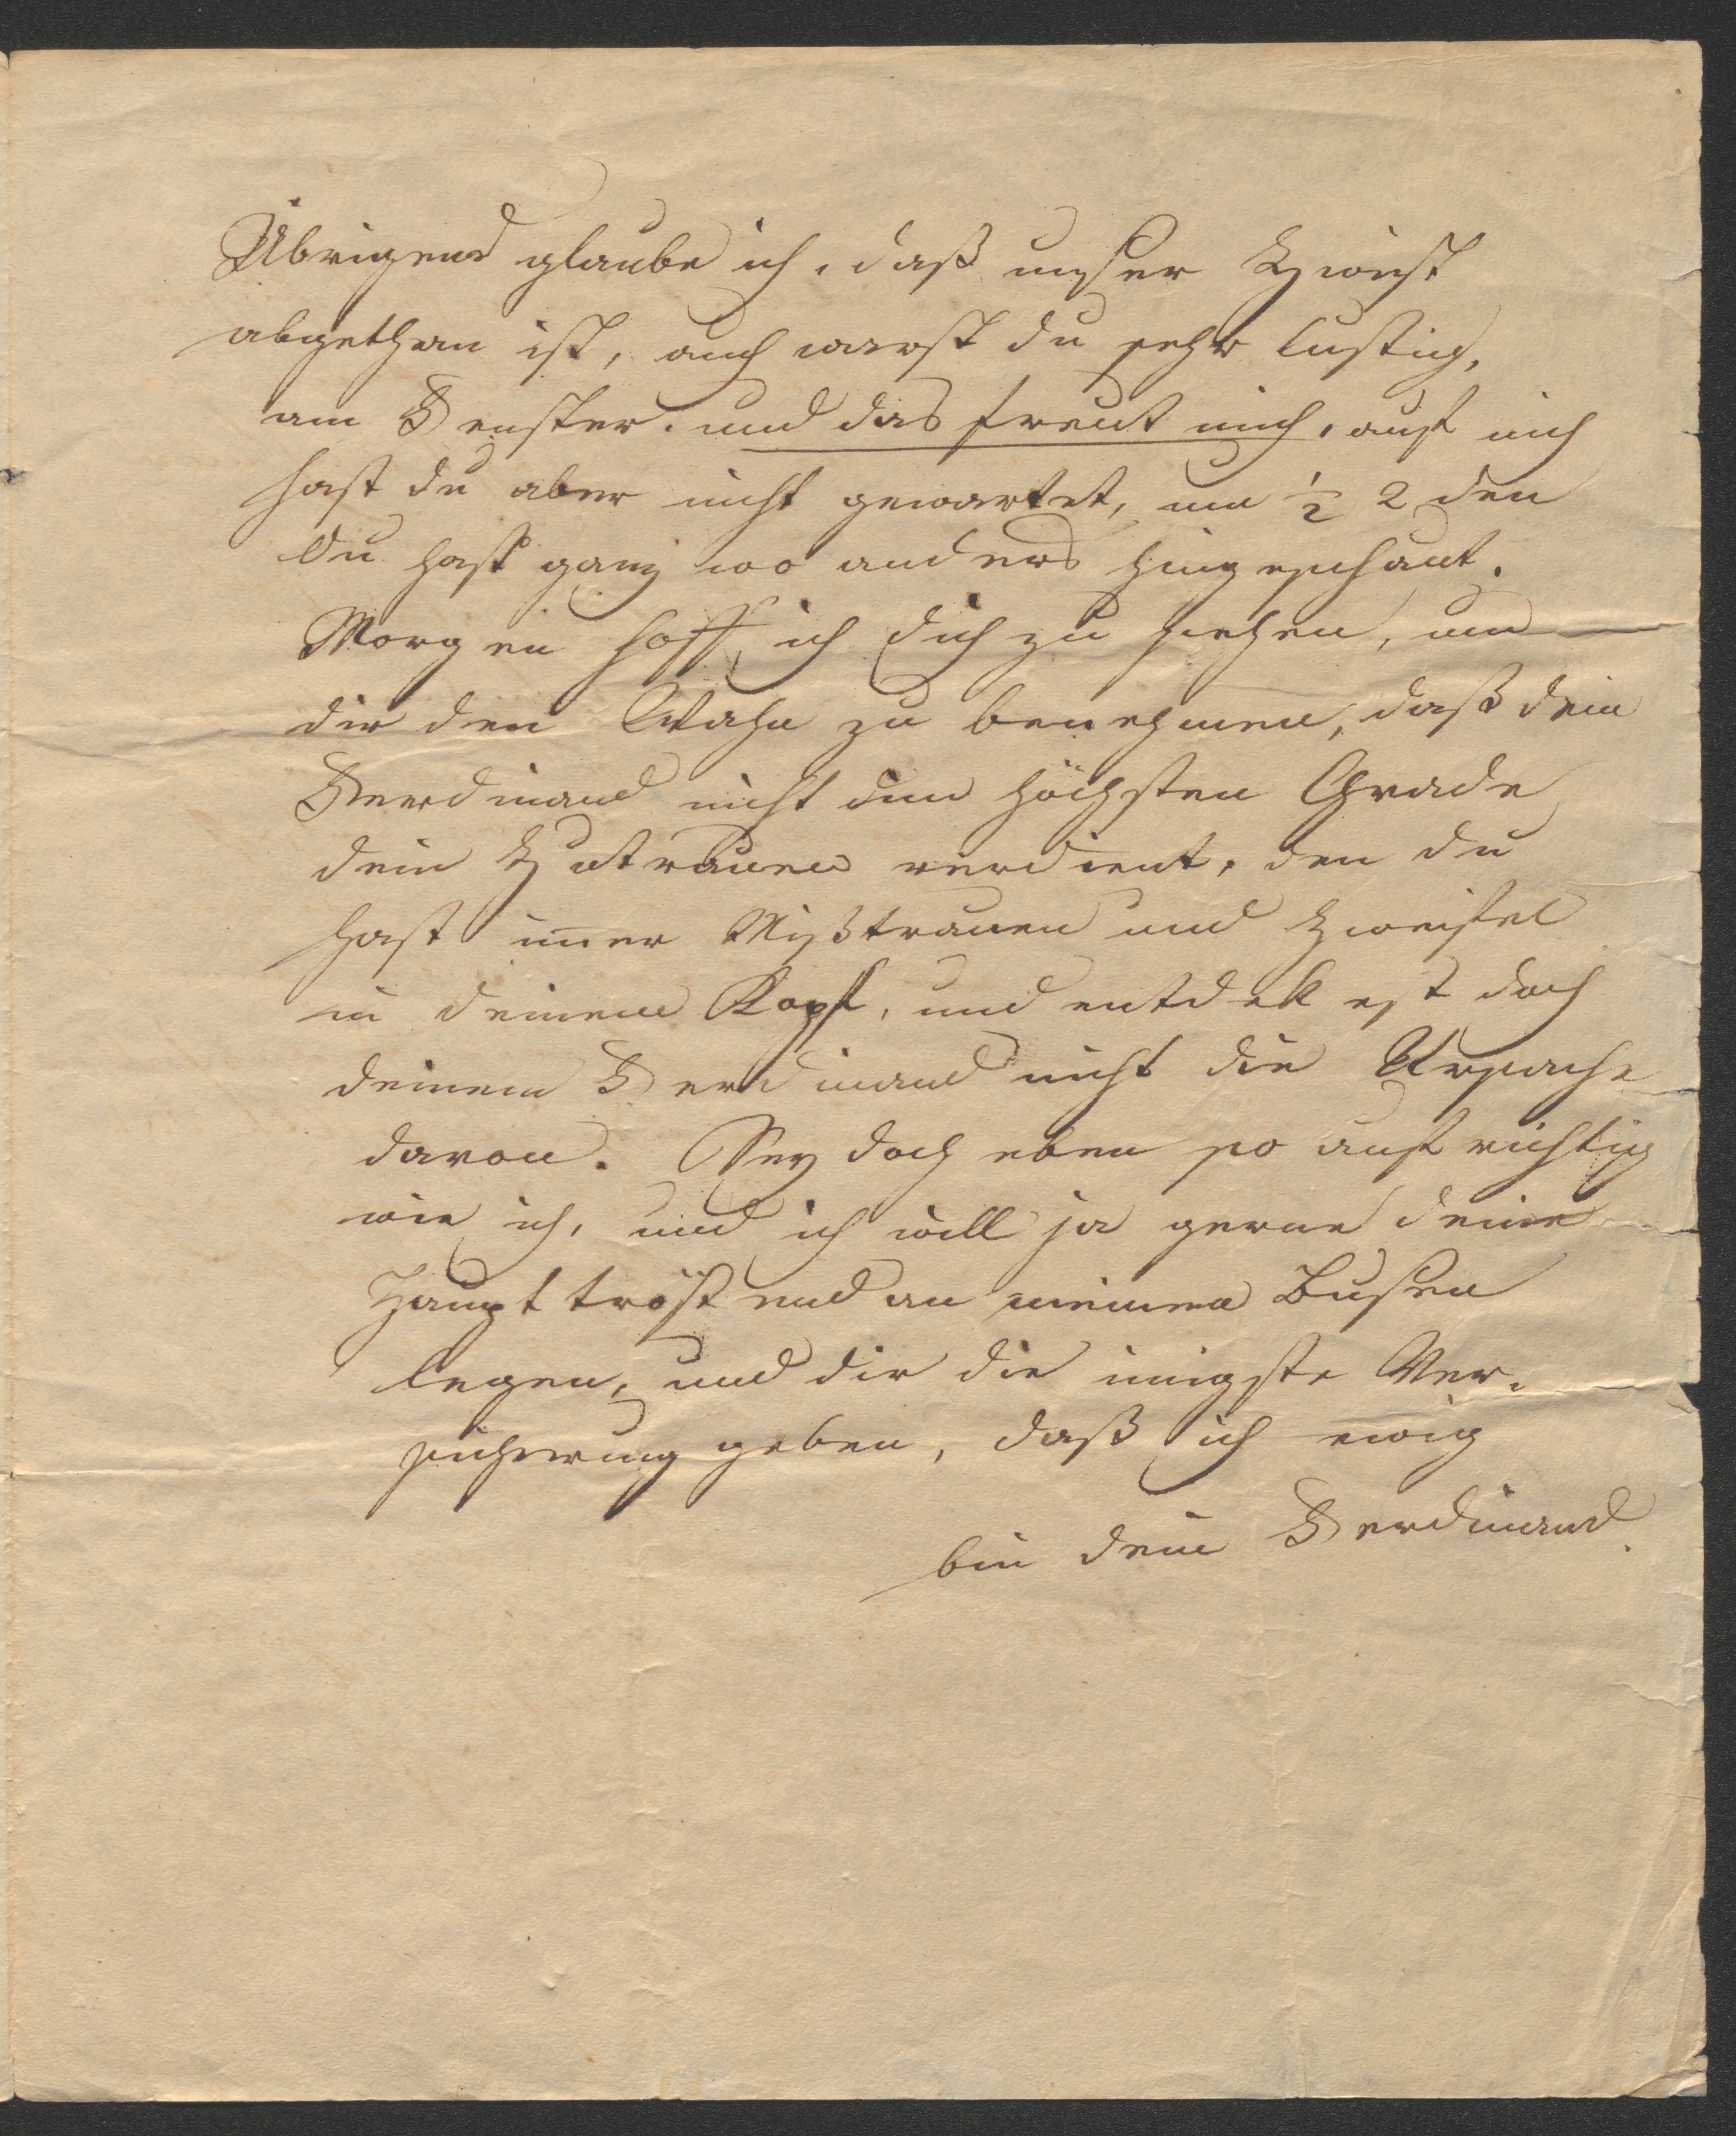 Übrigens glaube ich, daß unser Zwist
abgethan ist, auch warst du sehr lustig,
am Fenster. und das freut mich, auf mich
hast du aber nicht gewartet, um ½ 2 den
du hast ganz wo anders hingeschaut.
Morgen hoff ich dich zu sehen, um
dir den Wahn zu benehmen, daß dein
Ferdinand nicht im höchsten Grade
dein Zutrauen verdient, den du
hast im̄er Mißtrauen und Zweifel
in deinem Kopf, und entdekest doch
deinem Ferdinand nicht die Ursache
davon. Sey doch eben so aufrichtig
wie ich, und ich will ja gerne dein
Haupt tröstend an meinen Busen
legen, und dir die innigste Ver-
sicherung geben, daß ich ewig
bin dein Ferdinand.